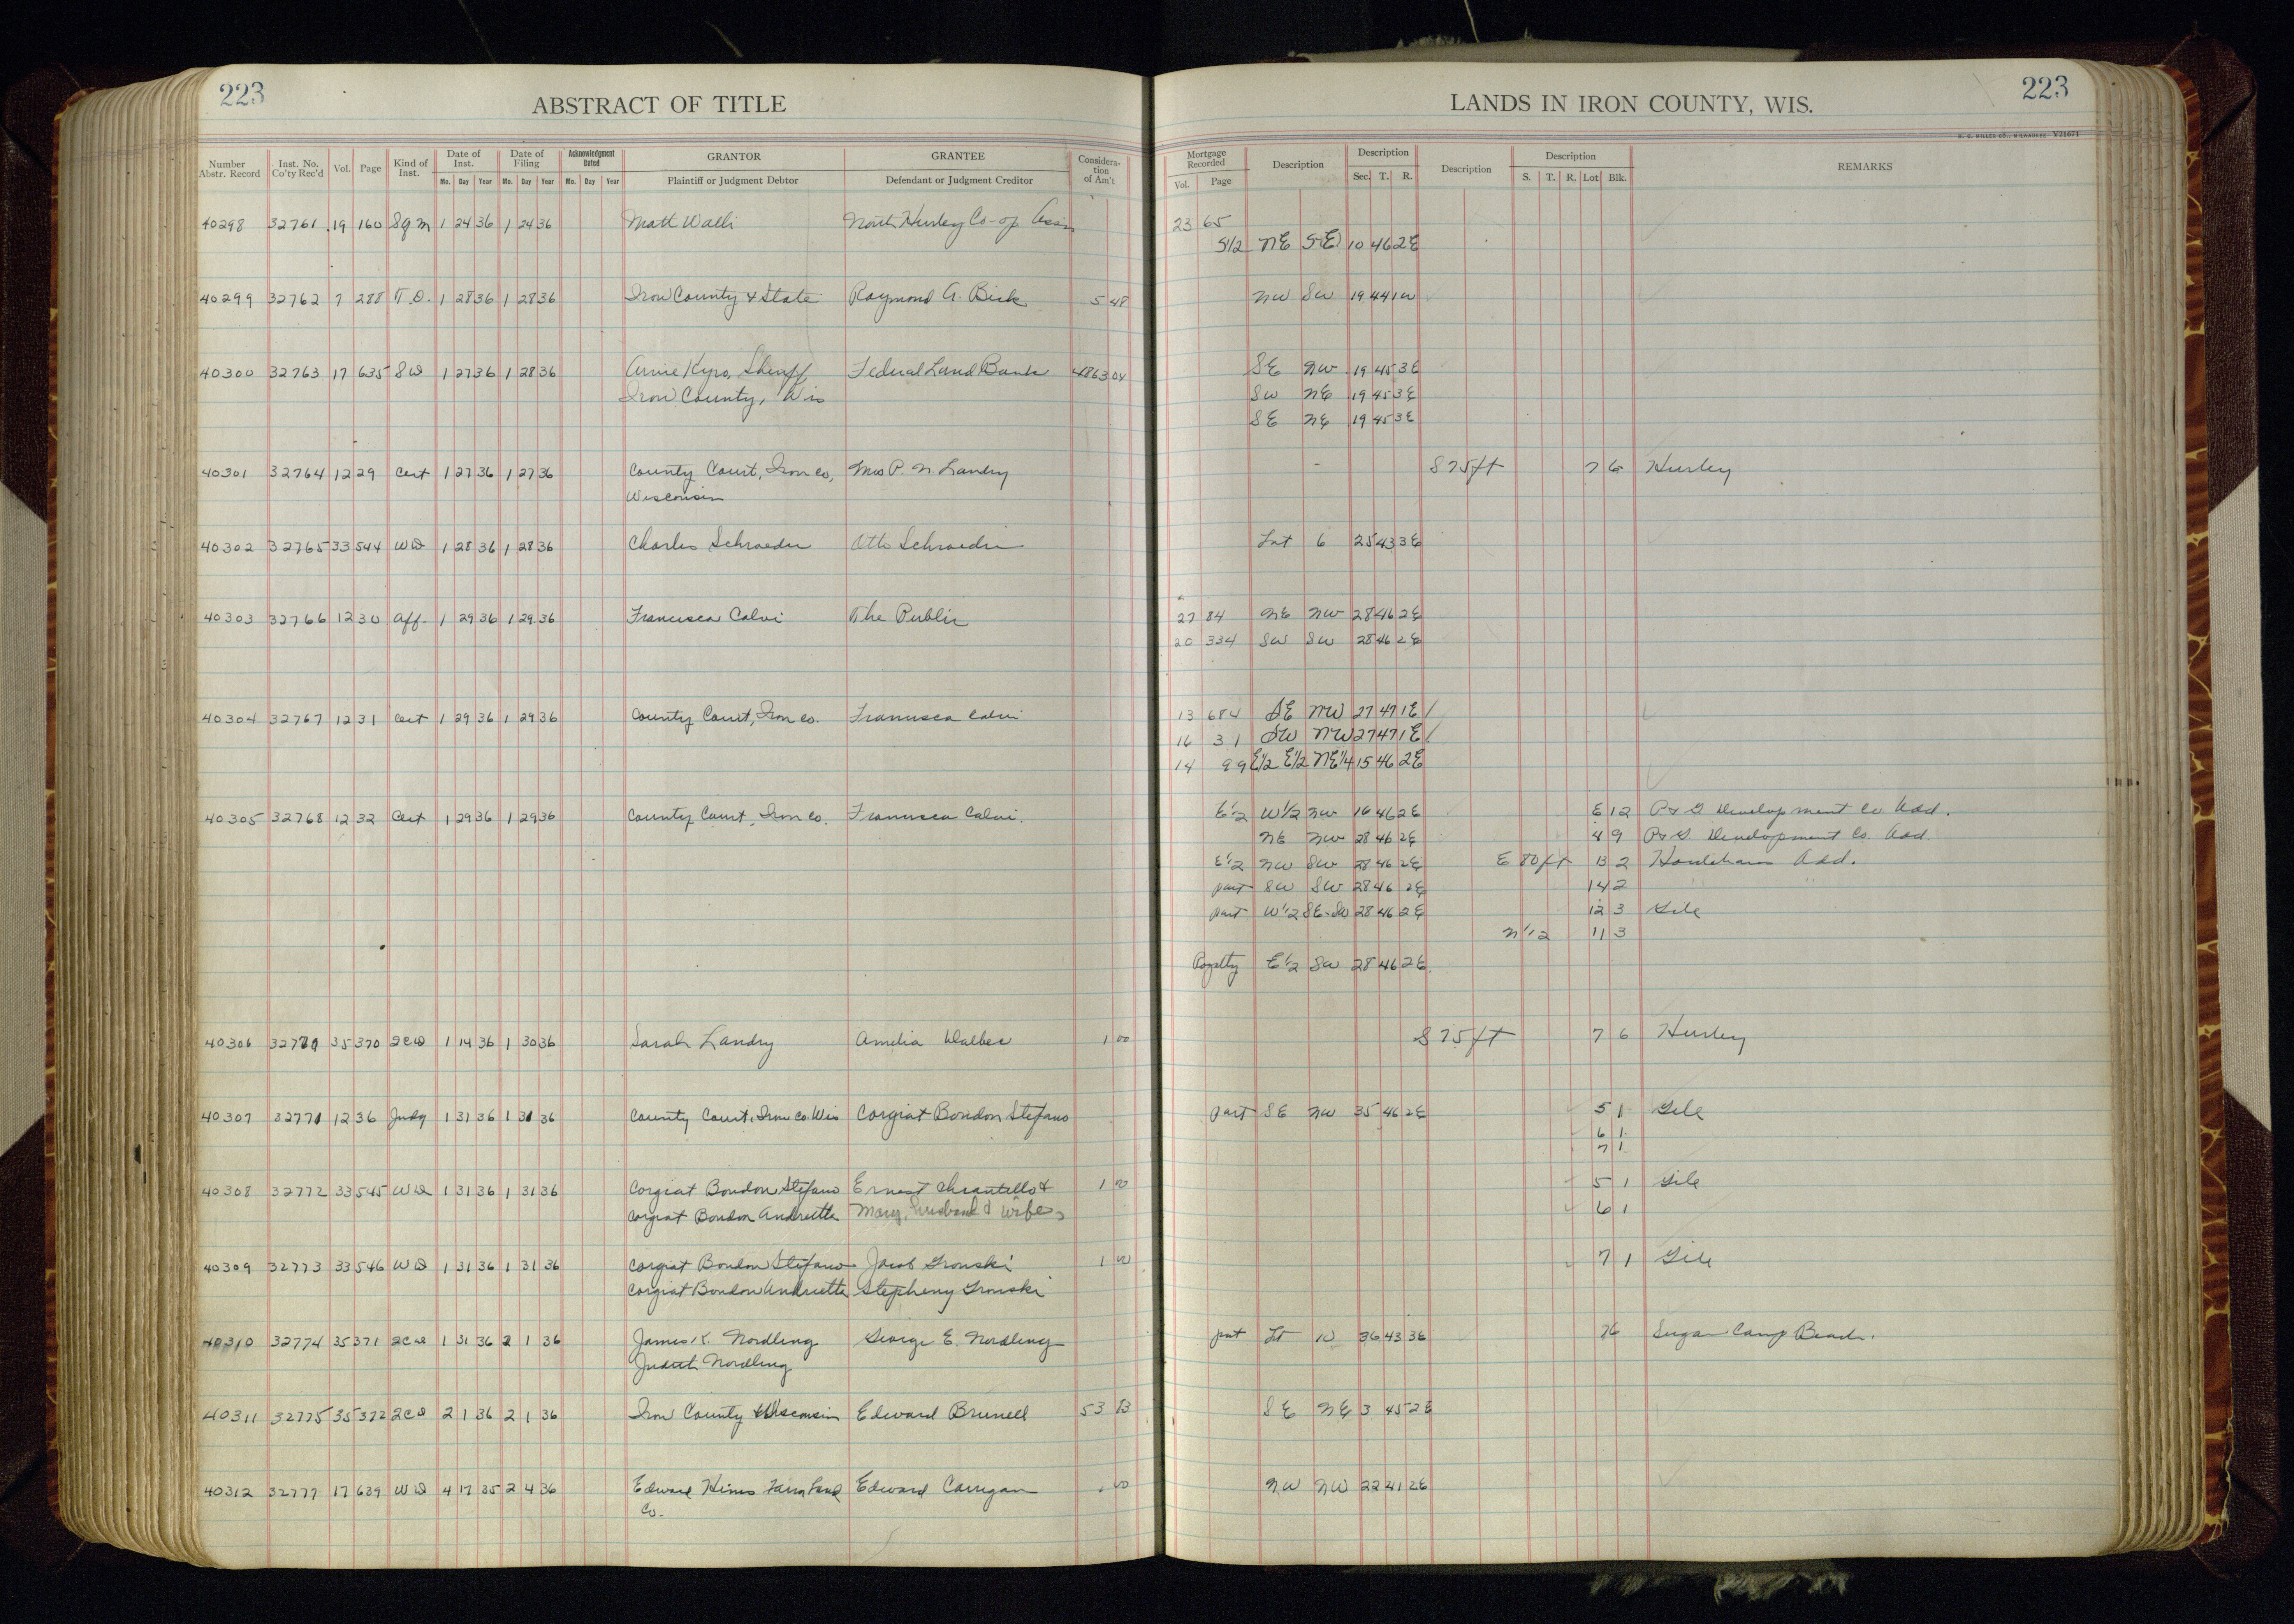 223
ABSTRACT OF TITLE
LANDS IN IRON COUNTY, WIS.
223
H. C. MILLER CO., MILWAUKEE Y21671
Number Abstr. Record | Inst. No. Co'ty Rec'd | Vol. | Page | Kind of Inst. | Date of Inst. Mo. Day Year | Date of Filing Mo. Day Year | Acknowledgment Dated Mo. Day Year | GRANTOR Plaintiff or Judgment Debtor | GRANTEE Defendant or Judgment Creditor | Consideration of Am't | Mortgage Recorded Vol. Page | Description | Description Sec. T. R. | Description | Description S. T. R. Lot Blk. | REMARKS
40298 32761 19 160 Sgm 1 24 36 1 24 36 Matt Walli North Hurley Co-op Assn 23 65
S1/2 NE SE 10 46 2E
40299 32762 7 288 T.D. 1 28 36 1 28 36 Iron County & State Raymond A. Bick 5 48 NW SW 19 44 1W
40300 32763 17 635 SD 1 27 36 1 28 36 Arvie Kyro, Sheriff Federal Land Bank 4863 04 SE NW 19 45 3E
Iron County, Wis SW NE 19 45 3E
SE NE 19 45 3E
40301 32764 12 29 Cert 1 27 36 1 27 36 County Court, Iron Co, Mrs P. N. Landry S 75 ft 7 6 Hurley
Wisconsin
40302 32765 33 544 WD 1 28 36 1 28 36 Charles Schroeder Otto Schroeder Lot 6 25 43 3E
40303 32766 12 30 Aff. 1 29 36 1 29 36 Francesca Calvi The Public 27 84 NE NW 28 46 2E
20 334 SW SW 28 46 2E
40304 32767 12 31 Cert 1 29 36 1 29 36 County Court, Iron Co. Francesca Calvi 13 684 SE NW 27 47 1E
16 31 SW NW 27 47 1E
14 99 E1/2 E1/2 NE1/4 15 46 2E
40305 32768 12 32 Cert 1 29 36 1 29 36 County Court, Iron Co. Francesca Calvi. E1/2 W1/2 NW 16 46 2E E 12 P & G Development Co Add.
NE NW 28 46 2E 4 9 P & G. Development Co. Add.
E1/2 NW SW 28 46 2E E 80 ft 13 2 Houlehans Add.
part SW SW 28 46 2E 14 2
part W1/2 SE-SW 28 46 2E 12 3 Gile
N1/2 11 3
Royalty E1/2 SW 28 46 2E.
40306 32770 35 370 2CD 1 14 36 1 30 36 Sarah Landry Amelia Walbec 1 00 S 75 ft 7 6 Hurley
40307 32771 12 36 Judg 1 31 36 1 31 36 County Court, Iron Co. Wis Corgiat Bondon Stefano part SE NW 35 46 2E 5 1 Gile
6 1
7 1
40308 32772 33 545 WD 1 31 36 1 31 36 Corgiat Bondon Stefano Ernest Chiantello & 1 00 5 1 Gile
Corgiat Bondon Andrietta Mary, husband & wife 6 1
40309 32773 33 546 WD 1 31 36 1 31 36 Corgiat Bondon Stefano Jacob Gronski 1 00 7 1 Gile
Corgiat Bondon Andrietta Stepheny Gronski
40310 32774 35 371 2CD 1 31 36 2 1 36 James K. Nordling George E. Nordling part Lt 10 36 43 3E 76 Sugar Camp Beach.
Judith Nordling
40311 32775 35 372 2CD 2 1 36 2 1 36 Iron County Wisconsin Edward Brunell 53 83 SE NE 3 45 2E
40312 32777 17 639 WD 4 17 35 2 4 36 Edward Hines Farm Land Edward Carrigan 00 NW NW 22 41 2E
Co.